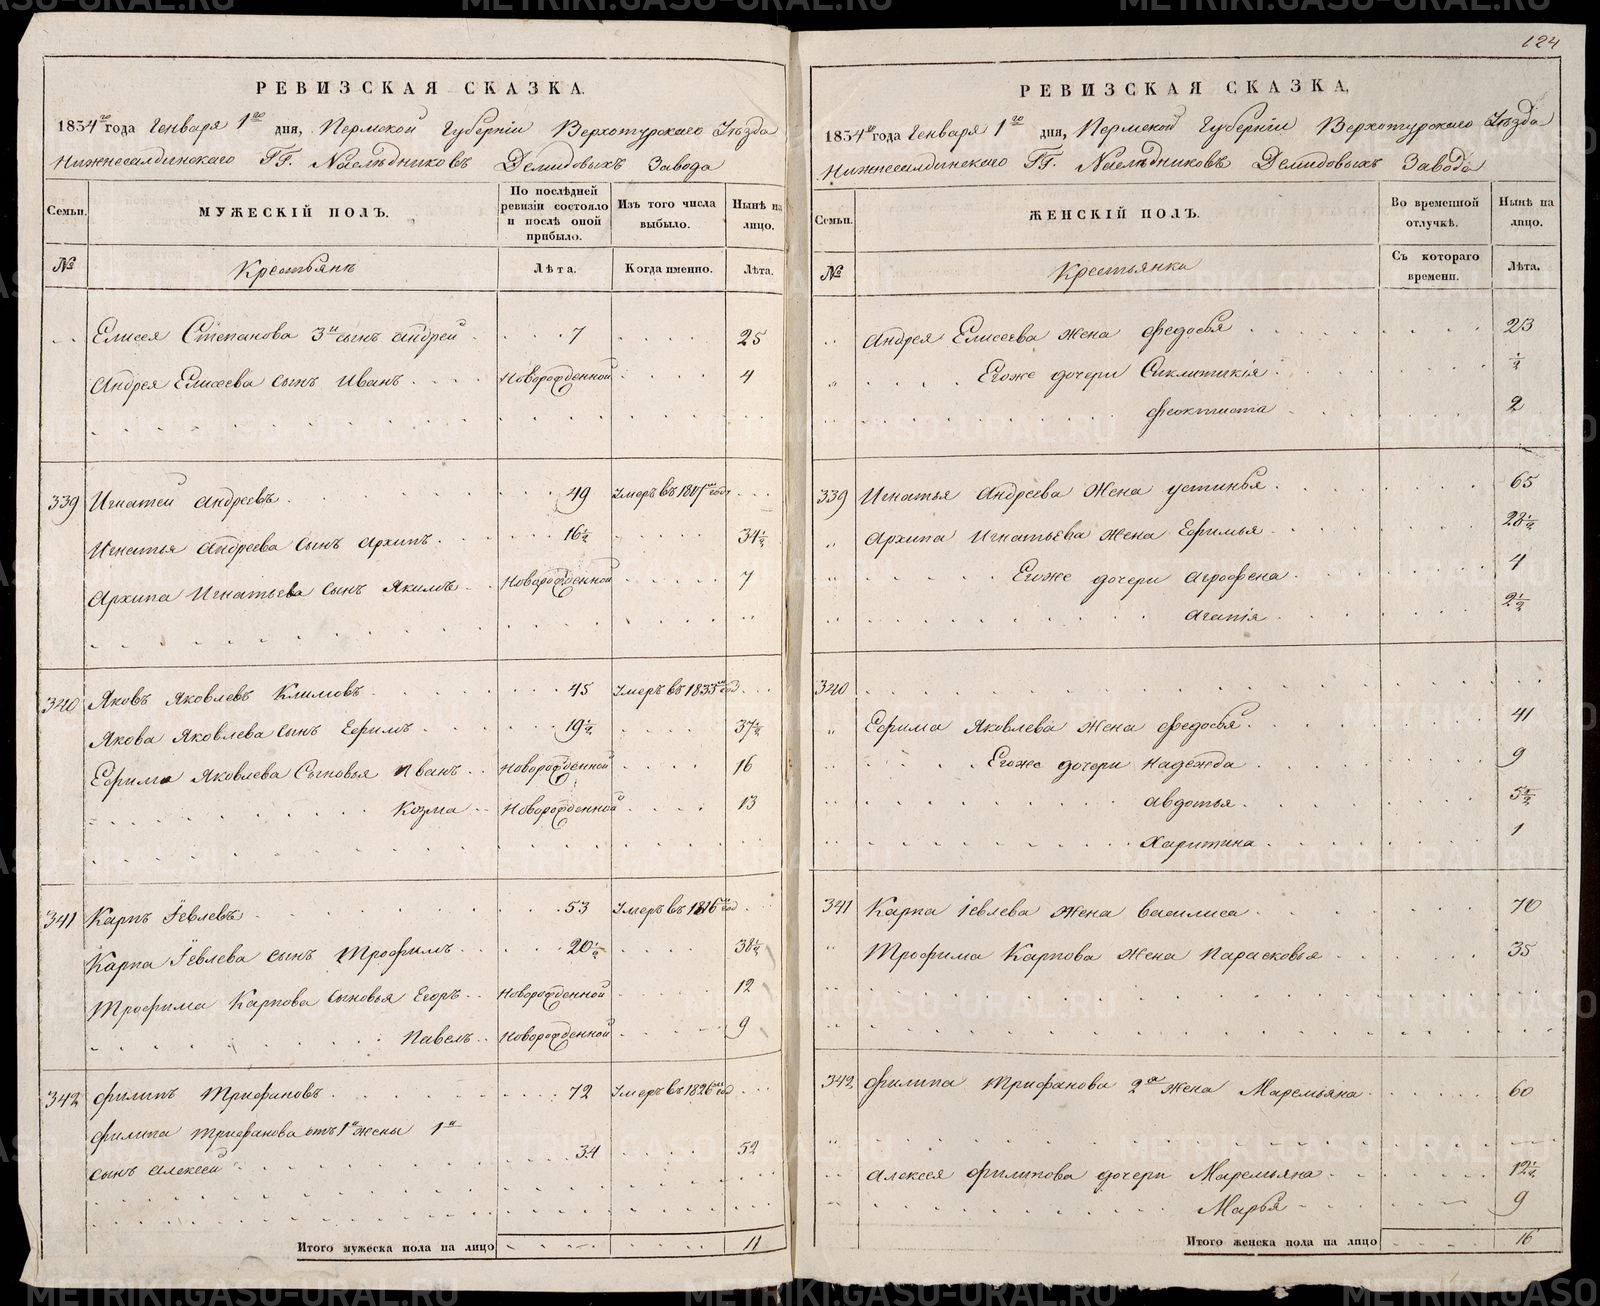 РЕВИЗСКАЯ СКАЗКА.
1834го года Генваря 1го дня, Пермской Губернiи Верхотурскаго Уѣзда
Нижнесалдинскаго ГГ. Наслѣдниковъ Демидовыхъ Завода
Семьи. МУЖЕСКIЙ ПОЛЪ. По послѣдней ревизiи состояло и послѣ оной прибыло. Изъ того числа выбыло. Нынѣ на лицо.
№ Крестьянъ Лѣта. Когда именно. Лѣта.
Елисея Степанова 3й сынъ Андрей 7 25
Андрея Елисеева сынъ Иванъ Новорожденной 4
339 Игнатей Андреевъ 49 Умеръ въ годѣ
Игнатья Андреева сынъ Архипъ 16½ 34½
Архипа Игнатьева сынъ Якимъ Новорожденной 7
340 Яковъ Яковлевъ Климовъ 45 Умеръ въ 1833м год
Якова Яковлева сынъ Ефимъ 19½ 37½
Ефима Яковлева сыновья Иванъ Новорожденной 16
Козма Новорожденной 13
341 Карпъ Їевлевъ 53 Умеръ въ 1816м год
Карпа Їевлева сынъ Трофимъ 20½ 38½
Трофима Карпова сыновья Егоръ Новорожденной 12
Павелъ Новорожденной 9
342 Филипъ Трифановъ 72 Умеръ въ 1826м год
Филипа Трифанова отъ 1й жены 1й
сынъ Алексей 34 52
Итого мужеска пола на лицо 11
124
РЕВИЗСКАЯ СКАЗКА,
1834го года Генваря 1го дня, Пермской Губернiи Верхотурскаго Уѣзда
Нижнесалдинскаго ГГ. Наслѣдниковъ Демидовыхъ Завода
Семьи. ЖЕНСКIЙ ПОЛЪ. Во временной отлучкѣ. Нынѣ на лицо.
№ Крестьянка Съ котораго времени. Лѣта.
Андрея Елисеева жена Федосья 23
Егоже дочери Сиклитикiя ½
Феоктиста 2
339 Игнатья Андреева жена Устинья 65
Архипа Игнатьева жена Ефимья 28½
Егоже дочери Агрофена 4
Агапiя 2½
340
Ефима Яковлева жена Федосья 41
Егоже дочери Надежда 9
Авдотья 5½
Харитина 1
341 Карпа Iевлева жена Василиса 70
Трофима Карпова жена Парасковья 35
342 Филипа Трифанова 2я жена Маремьяна 60
Алексея Филипова дочери Маремьяна 12½
Марья 9
Итого женска пола на лицо 16
METRIKI.GASO-URAL.RU